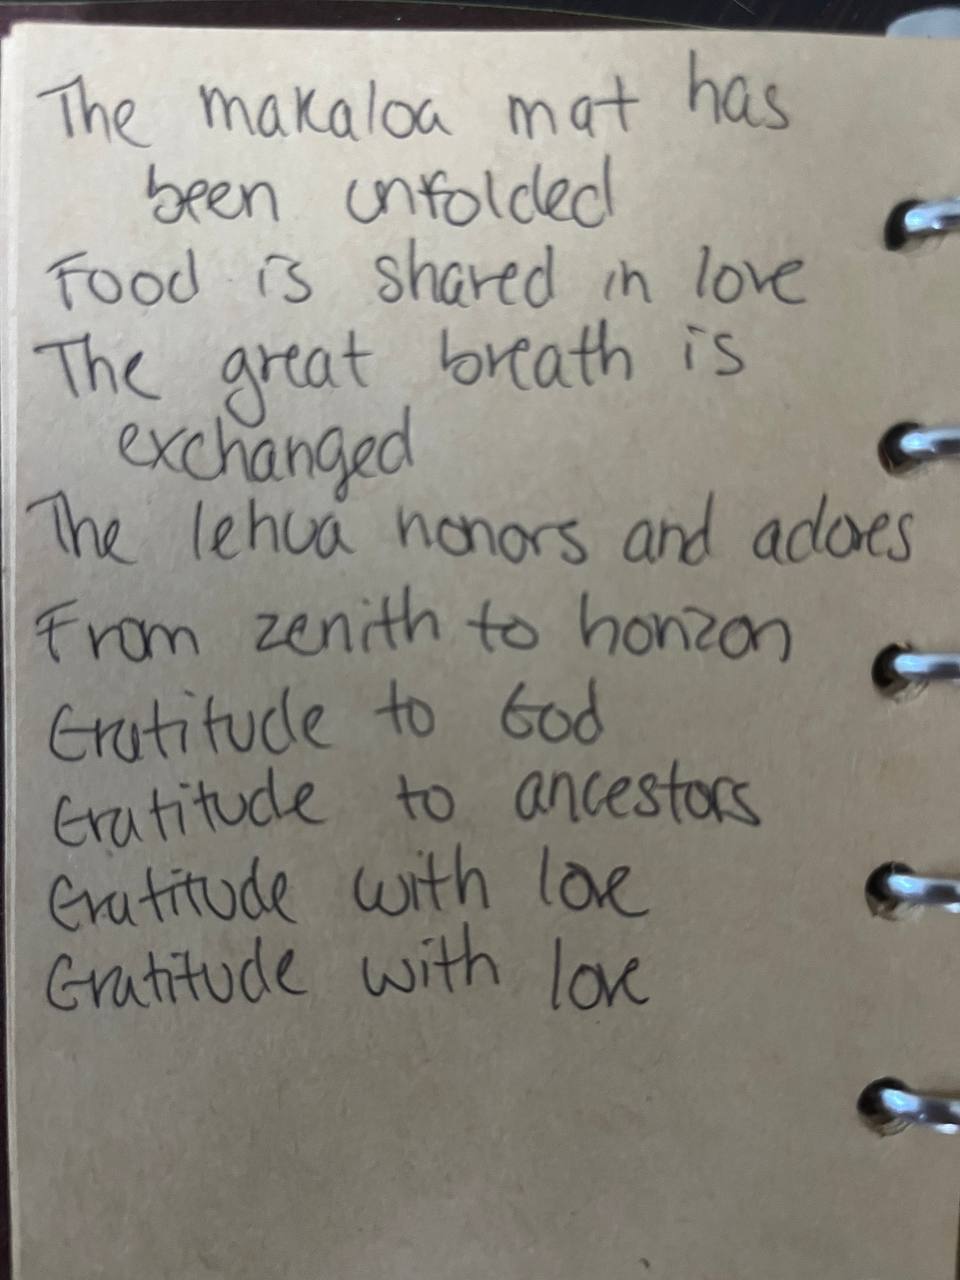 The makaloa mat has
been unfolded
Food is shared in love
The great breath is
exchanged
The lehua honors and adores
From zenith to horizon
Gratitude to God
Gratitude to ancestors
Gratitude with love
Gratitude with love